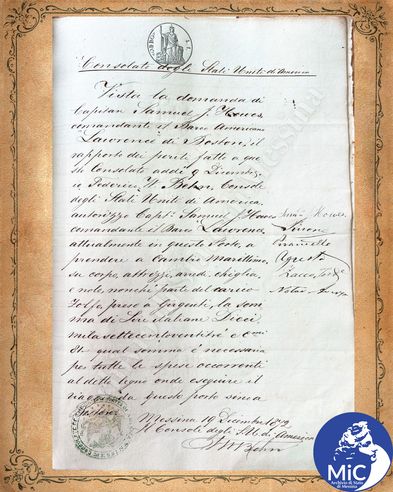 Consolato degli Stati Uniti di America
Vista la domanda di
Capitan Samuel J. Howes
comandante il Barco Americano
Lawrence di Boston, il
rapporto dei periti fatto a que
sto Consolato addì 9 Dicembre,
io Federico W. Behn, Console
degli Stati Uniti di America,
autorizzo Capt. Samuel J. Howes
comandante il Barco Lawrence
attualmente in questo Porto, a
prendere a Cambio Marittimo,
su corpo, attrezzi, arredi, chiglia,
e nolo, nonchè parte del carico
Zolfo, preso a Girgenti, la som
ma di Lire italiane Dieci
mila settecentoventitrè e
qual somma è necessaria
per tutte le spese occorrenti
al detto legno onde eseguire il
questo porto senza
Messina 19 Dicembre
Il Console degli S. U. di America
F W Behn
Howes
MiC
Archivio di Stato
di Messina